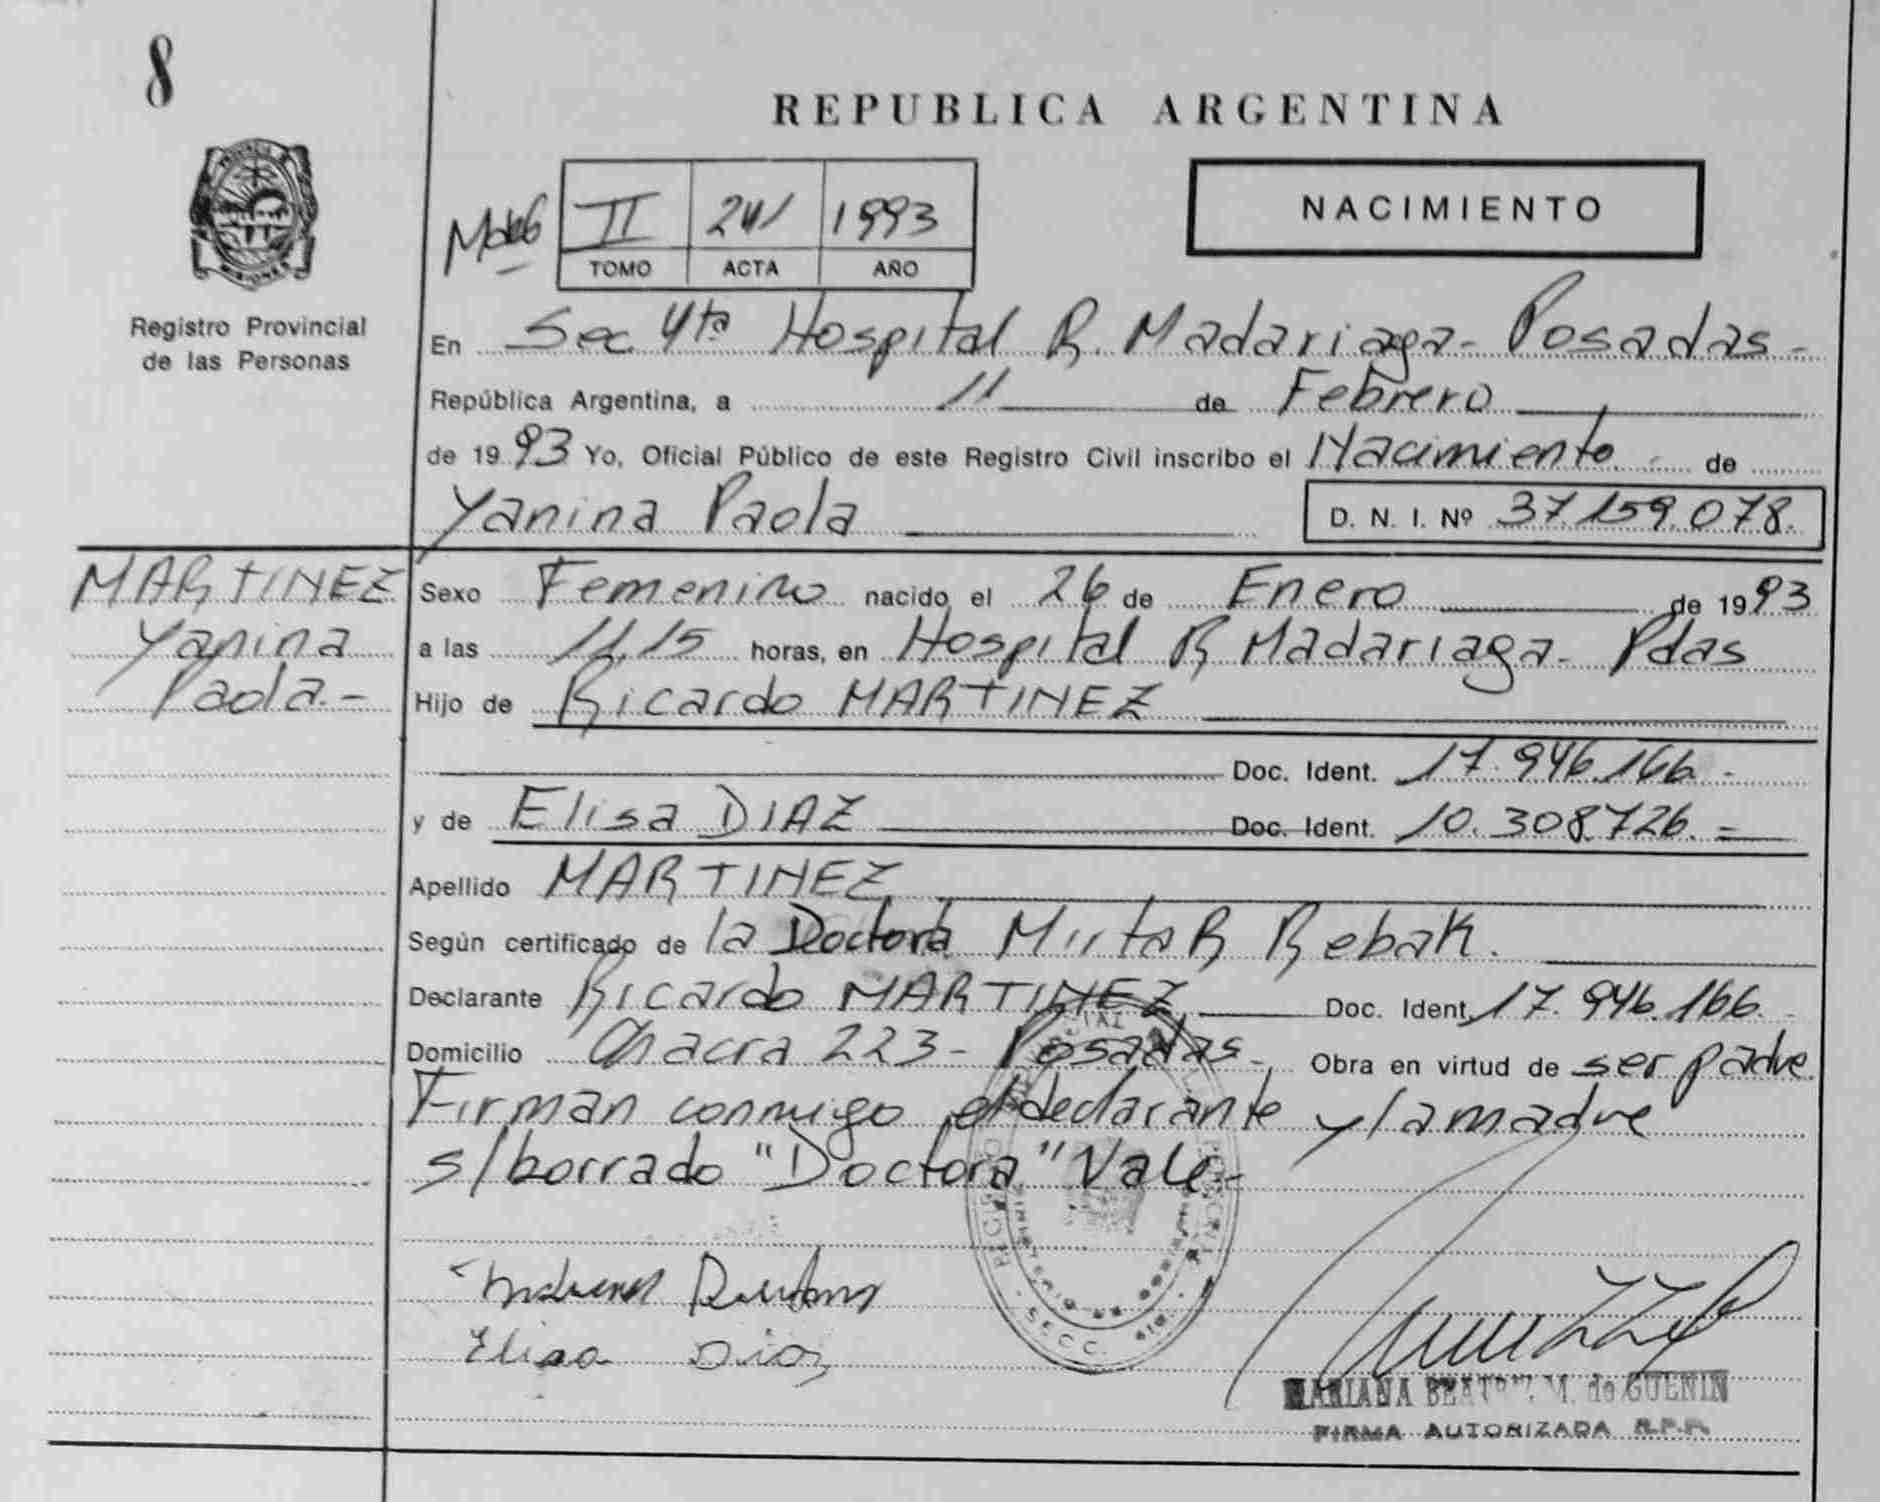 8
REPUBLICA ARGENTINA
PROVINCIA DE MISIONES
NACIMIENTO
II 241 1993
TOMO ACTA AÑO
Registro Provincial
de las Personas
En Sec 4ta Hospital R. Madariaga - Posadas -
República Argentina, a 11 de Febrero
de 1993 Yo, Oficial Público de este Registro Civil inscribo el Nacimiento de
Yanina Paola D. N. I. Nº 37.159.078.
MARTINEZ
Yanina
Paola.-
Sexo Femenino nacido el 26 de Enero de 1993
a las 11,15 horas, en Hospital R Madariaga - Pdas
Hijo de Ricardo MARTINEZ
Doc. Ident. 17.946.166. -
y de Elisa DIAZ Doc. Ident. 10.308.726. =
Apellido MARTINEZ
Según certificado de la Doctora Mirta R Rebak.
Declarante Ricardo MARTINEZ Doc. Ident. 17.946.166. -
Domicilio Chacra 223 - Posadas - Obra en virtud de ser padre
Firman conmigo el declarante y la madre
s/borrado "Doctora" Vale -
Elisa Diaz
SECC.
MARIANA M. de GUENIN
FIRMA AUTORIZADA R.P.P.